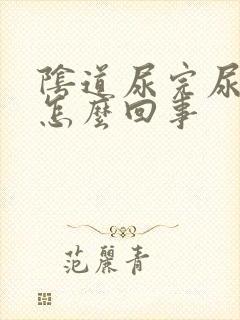 陰道尿完尿
怎麼回事
范麗青